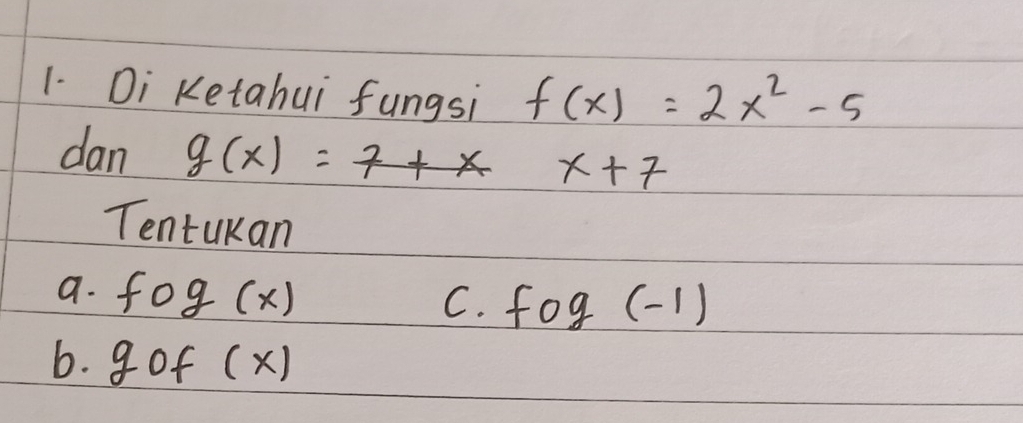 1. Di Ketahui fungsi f(x) = 2x² - 5
dan g(x) = 7 + x x + 7
Tentukan
a. fog (x) C. fog (-1)
b. gof (x)